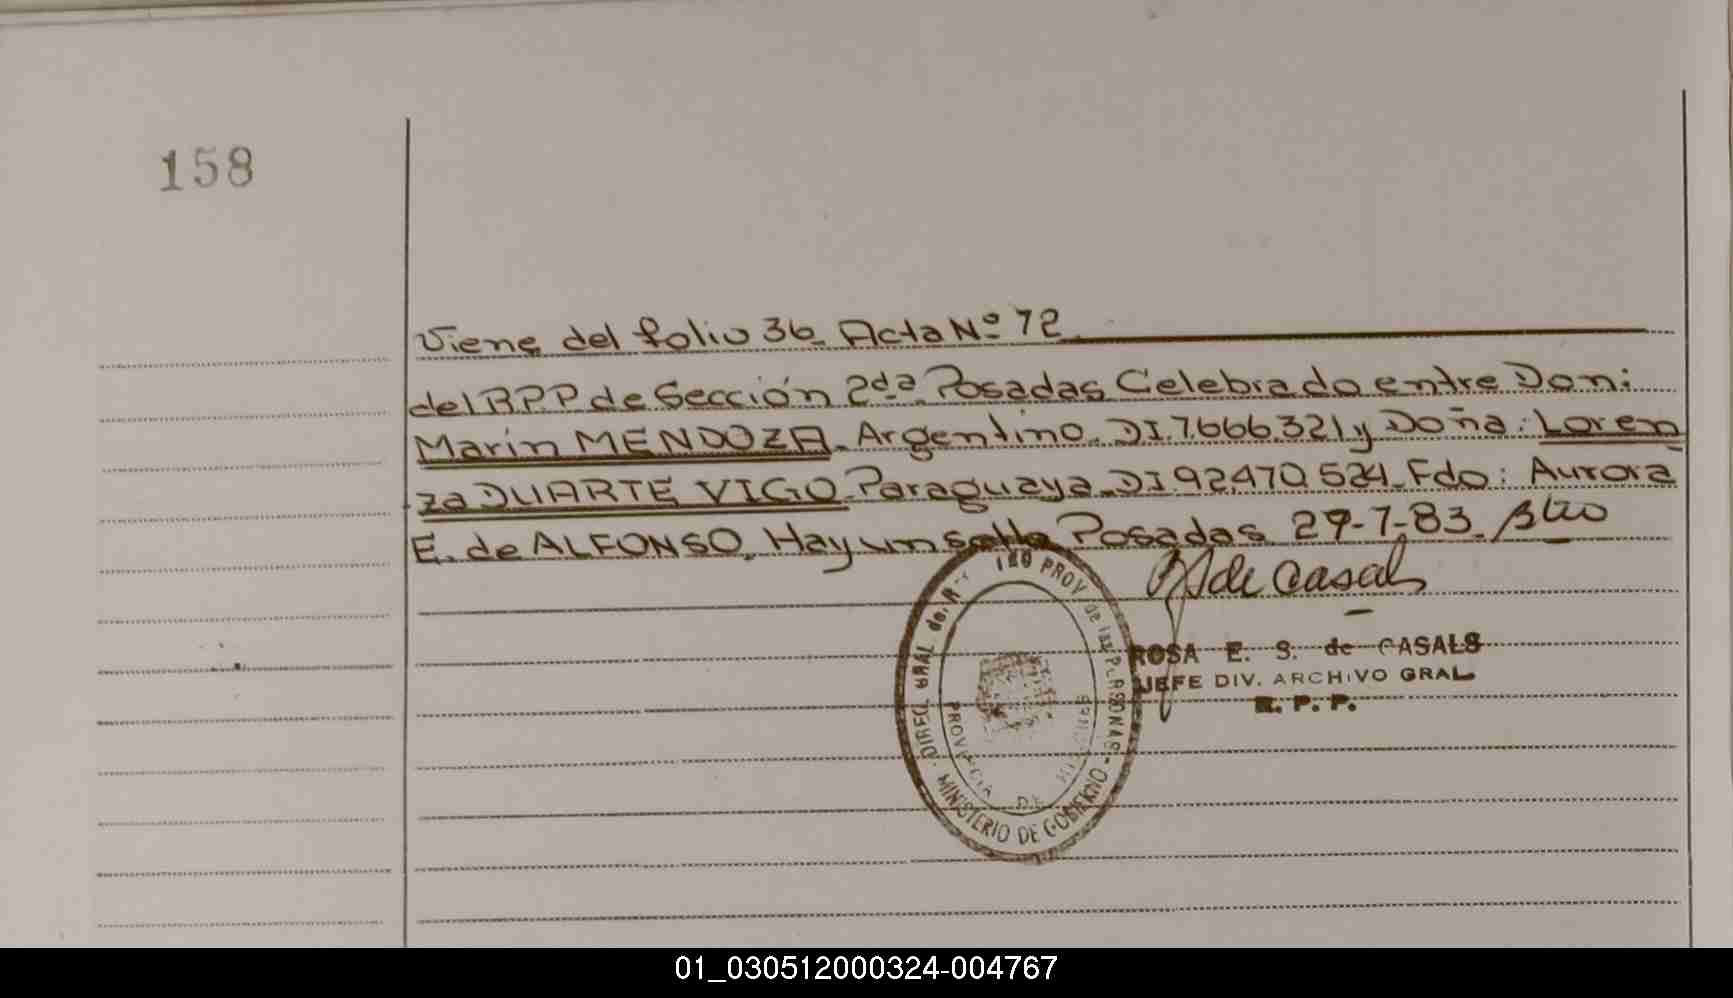 158
Viene del folio 36 Acta Nº 72
del R.P.P de Sección 2da Posadas Celebrado entre Don:
Marin MENDOZA. Argentino. DI.7.666.321 y Doña: Loren
za DUARTE VIGO. Paraguaya. DI 92.470.524. Fdo: Aurora
E. de ALFONSO. Hay un sello Posadas 29-7-83.
de Casals
ROSA E. S. de CASALS
JEFE DIV. ARCHIVO GRAL
R. P. P.
DIREC. GRAL de PROV de las PERSONAS - MINISTERIO DE GOBIERNO
PROVINCIA DE MISIONES
01_030512000324-004767